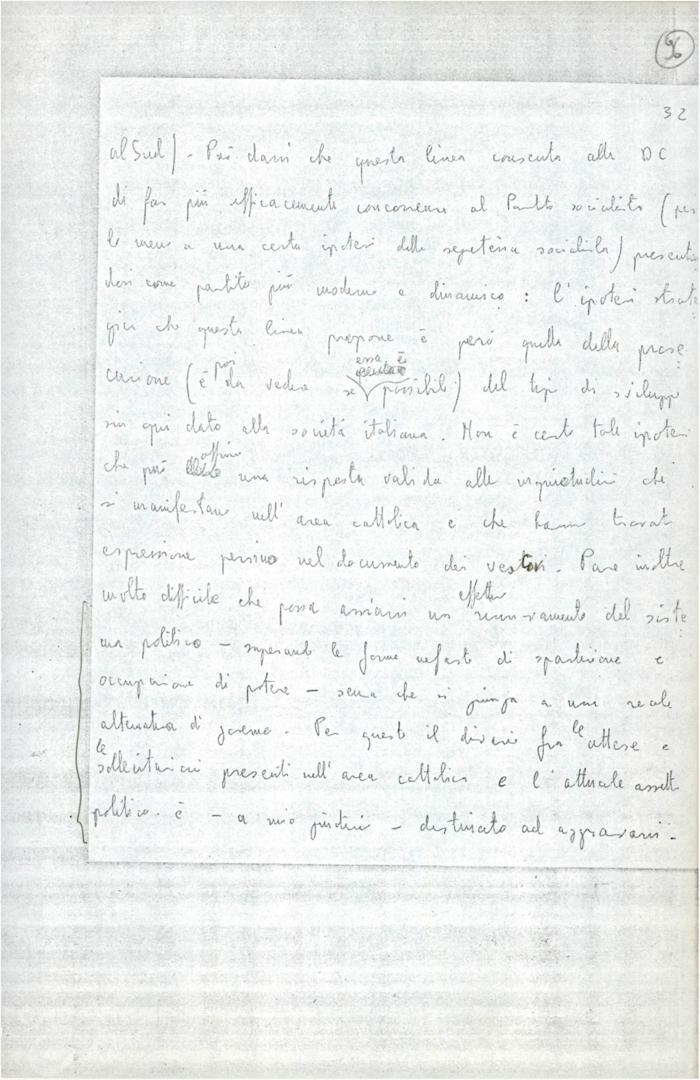 96
32
al Sud) - Può darsi che questa linea consenta alla DC
di far più efficacemente concorrenza al Partito socialista (per
lo meno a una certa ipotesi della segreteria socialista) presentan
dosi come partito più moderno e dinamico: l'ipotesi strate
gica che questa linea propone è però quella della prose
essa è
cuzione (è poi da vedere se possibile) del tipo di sviluppo
sin qui dato alla società italiana. Non è certo tale ipotesi
che può offrire una risposta valida alle inquietudini che
si manifestano nell'area cattolica e che hanno trovato
espressione persino nel documento dei vescovi. Pare inoltre
molto difficile che possa avviarsi un effettivo rinnovamento del siste
ma politico - superando le forme nefaste di spartizione e
occupazione di potere - senza che si giunga a una reale
alternativa di governo. Per questo il divario fra le attese e
le sollecitazioni presenti nell'area cattolica e l'attuale assetto
politico è - a mio giudizio - destinato ad aggravarsi -